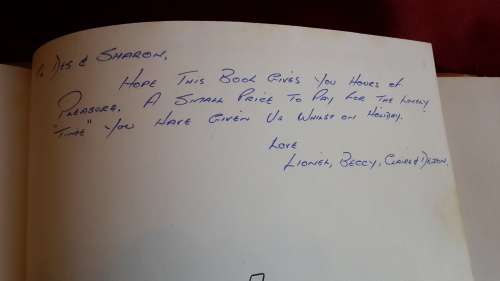 To Des & Sharon,
Hope This Book Gives You Hours of
Pleasure. A Small Price To Pay For The Lovely
"Time" You Have Given Us Whilst on Holiday.
Love
Lionel, Beccy, Claire &